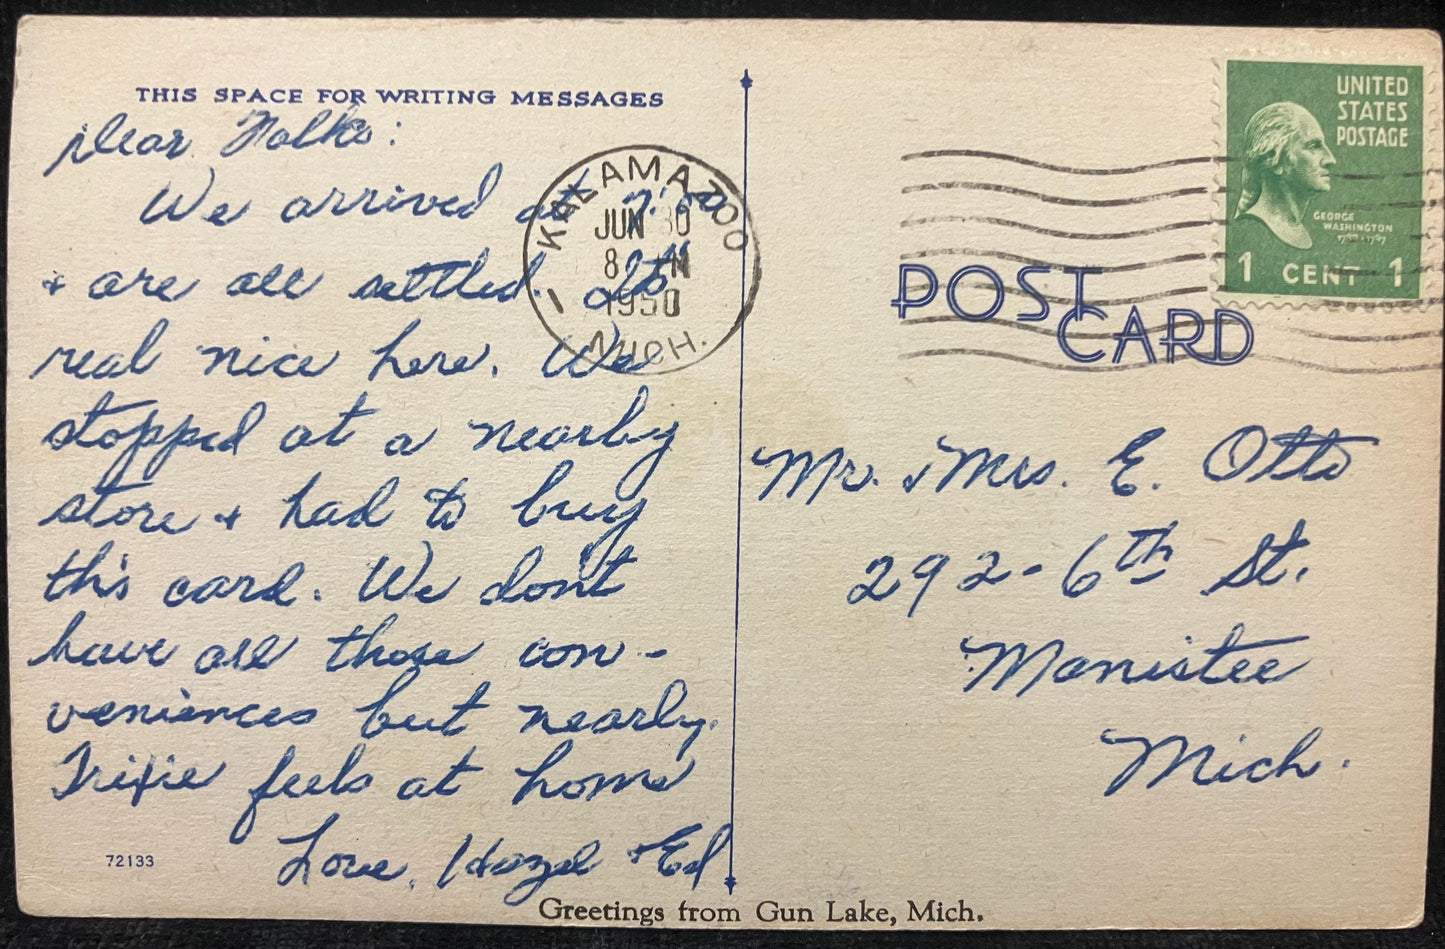 THIS SPACE FOR WRITING MESSAGES
Dear Folks:
We arrived at
+ are all settled. Its
real nice here. We
stopped at a nearby
store + had to buy
this card. We don't
have all those con-
veniences but nearly.
Trixie feels at home
Love, Hazel + Ed
72133
KALAMAZOO
JUN 30
8 M
1950
1
MICH.
UNITED
STATES
POSTAGE
GEORGE
WASHINGTON
1 CENT 1
POST
CARD
Mr. + Mrs. E. Otto
292-6th St.
Manistee
Mich.
Greetings from Gun Lake, Mich.